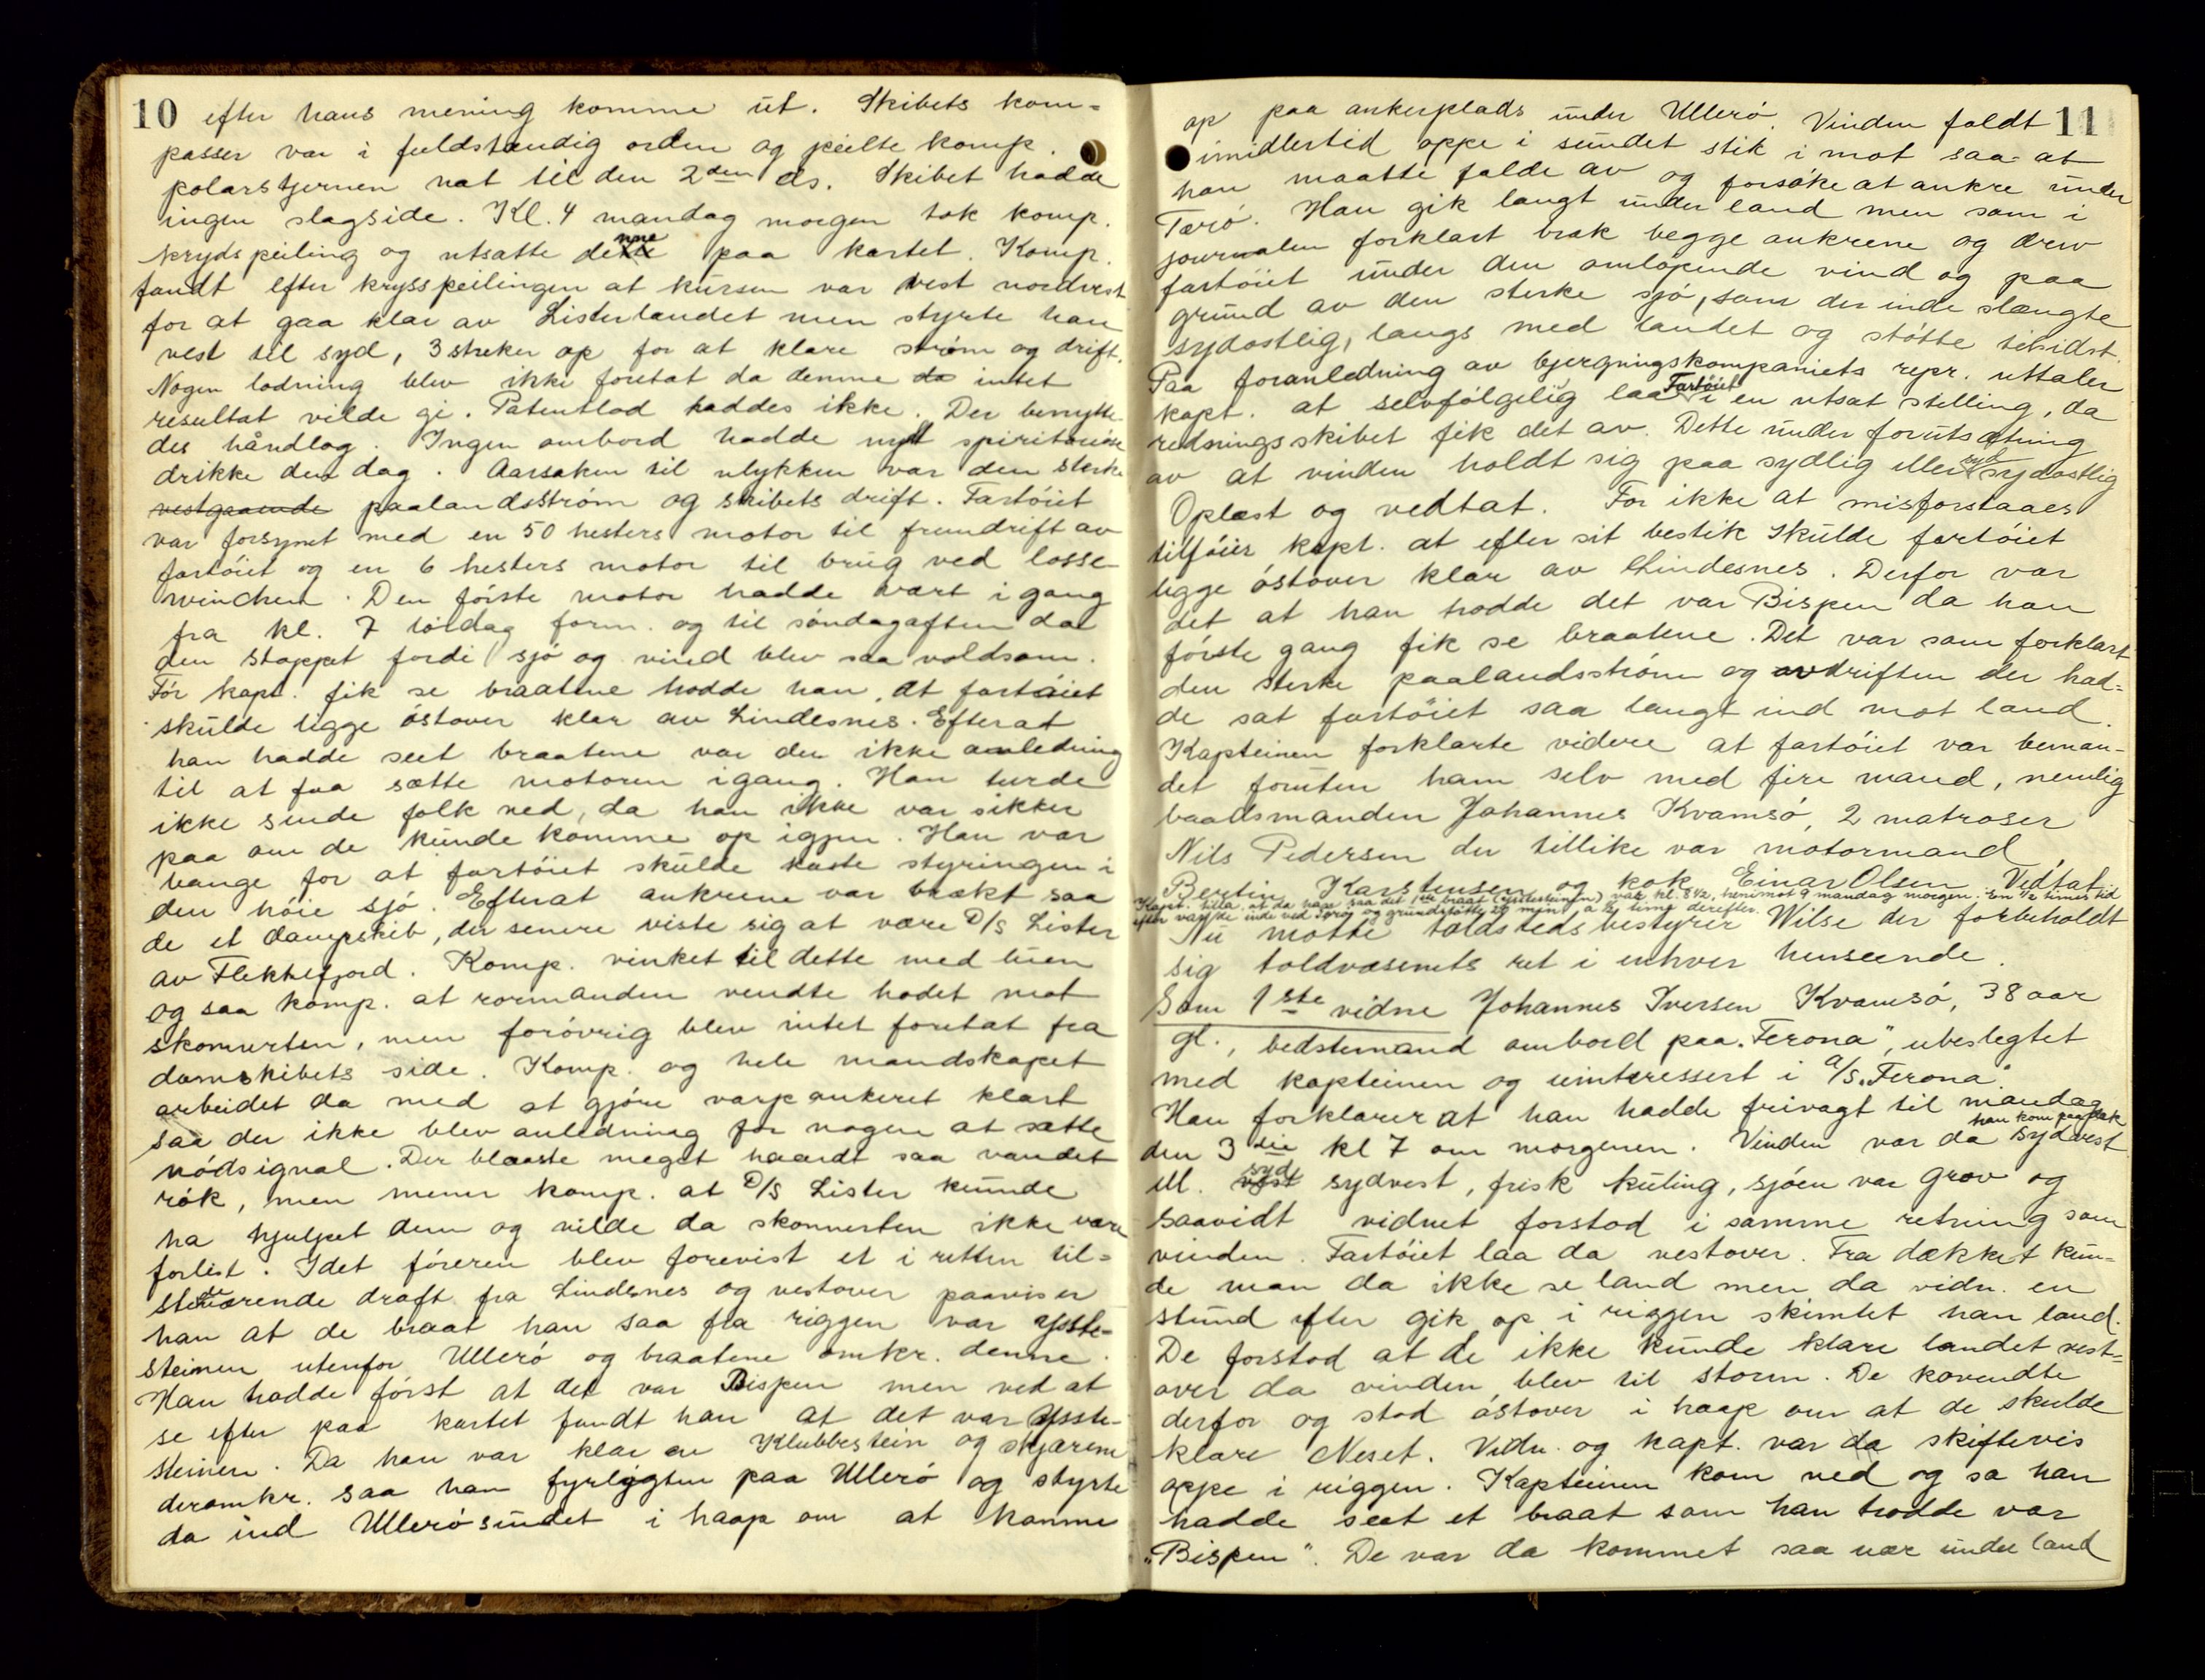 10
efter hans mening komme ut. Skibets kom=
passer var i fuldstændig orden og peilte komp.
polarstjernen nat til den 2den ds. Skibet hadde
ingen slagside. Kl. 4 mandag morgen tok komp.
krydspeiling og utsatte denne paa kartet. Komp.
fandt efter krysspeilingen at kursen var vest nordvest
for at gaa klar av Listerlandet men styrte han
vest til syd, 3 streker op for at klare strøm og drift.
Nogen lodning blev ikke foretat da denne da intet
resultat vilde gi. Patentlod haddes ikke. Der benytte-
des håndlog. Ingen ombord hadde nydt spirituøse
drikke den dag. Aarsaken til ulykken var den sterke
vestgaaende paalandsstrøm og skibets drift. Fartøiet
var forsynet med en 50 hesters motor til fremdrift av
fartøiet og en 6 hesters motor til brug ved losse-
winchen. Den første motor hadde vært i gang
fra kl. 7 lørdag form. og til søndagaften da
den stoppet fordi sjø og vind blev saa voldsom.
Før kapt. fik se braatene trodde han, at fartøiet
skulde ligge østover klar av Lindesnes. Efterat
han hadde seet braatene var der ikke anledning
til at faa sætte motoren igang. Han turde
ikke sende folk ned, da han ikke var sikker
paa om de kunde komme op igjen. Han var
bange for at fartøiet skulde kaste styringen i
den høie sjø. Efterat ankrene var brækt saa
de et dampskib, der senere viste sig at være D/S Lister
av Flekkefjord. Komp. vinket til dette med luen
og saa komp. at rormanden vendte hodet mot
skonnerten, men forøvrig blev intet foretat fra
damskibets side. Komp. og hele mandskapet
arbeidet da med at gjøre varpankeret klart
saa der ikke blev anledning for nogen at sætte
nødsignal. Der blaaste meget haardt saa vandet
røk, men mener komp. at D/S Lister kunde
ha hjulpet dem og vilde da skonnerten ikke være
forlist. Idet føreren blev forevist et i retten til=
stedeværende draft fra Lindesnes og vestover paaviser
han at de braat han saa fra riggen var Ysste-
steinen utenfor Ullerø og braatene omkr. denne.
Han trodde først at det var Bispen men ved at
se efter paa kartet fandt han at det var Ysste-
steinen. Da han var klar av Klubbestein og skjærene
deromkr. saa han fyrlygten paa Ullerø og styrte
da ind Ullerøsundet i haap om at komme
11
op paa ankerplads under Ullerø. Vinden faldt
imidlertid oppe i sundet stik i mot saa at
han maatte falde av og forsøke at ankre under
Tarø. Han gik langt under land men som i
journalen forklart brak begge ankrene og drev
fartøiet under den omløpende vind og paa
grund av den sterke sjø, som der inde slængte
sydostlig, langs med landet og støtte tilsidst.
Paa foranledning av bjergningskompaniets repr. uttaler
kapt. at selvfølgelig laa Fartøiet i en utsat stilling, da
redningsskibet fik det av. Dette under forutsætning
av at vinden holdt sig paa sydlig eller syd sydostlig
Oplæst og vedtat. For ikke at misforstaaes
tilføier kapt. at efter sit bestik skulde fartøiet
ligge østover klar av Lindesnes. Derfor var
det at han trodde det var Bispen da han
første gang fik se braatene. Det var som forklart
den sterke paalandsstrøm og avdriften der had=
de sat fartøiet saa langt ind mot land.
Kapteinen forklarte videre at fartøiet var beman-
det foruten ham selv med fire mand, nemlig
baadsmanden Johannes Kvamsø, 2 matroser
Nils Pedersen der tillike var motormand,
Bertin Karstensen og kok Einar Olsen. Vedtat
Kapt. tilla. at da han saa det 1ste braat (Ysstesteinen) var kl. 8½, henimot 9 mandag morgen. En ½ times tid
efter var de inde ved Tarø og grundstøtte 20 min. a ½ time derefter.
Nu møtte toldstedsbestyrer Wilse der forbeholdt
sig toldvæsenets ret i enhver henseende.
Som 1ste vidne Johannes Iversen Kvamsø, 38 aar
gl., bedstemand ombord paa "Ferona", ubeslegtet
med kapteinen og uinteressert i a/s "Ferona".
Han forklarer at han hadde frivagt til mandag
den 3die kl 7 om morgenen. Vinden var da han kom paa dæk sydvest
ell. vest syd sydvest, frisk kuling, sjøen var grov og
saavidt vidnet forstod i samme retning som
vinden. Fartøiet laa da vestover. Fra dækket kun=
de man da ikke se land men da vidn. en
stund efter gik op i riggen skimtet han land.
De forstod at de ikke kunde klare landet vest=
over da vinden blev til storm. De kovendte
derfor og stod østover i haap om at de skulde
klare Neset. Vidn. og kapt. var da skiftevis
oppe i riggen. Kapteinen kom ned og sa han
hadde seet et braat som han trodde var
"Bispen". De var da kommet saa nær under land